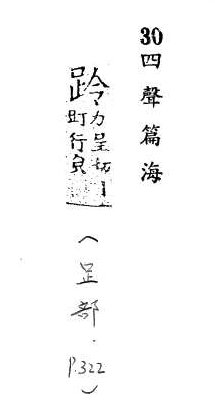 30四聲篇海
跉力呈切丨
町行皃
(足部.P.322)